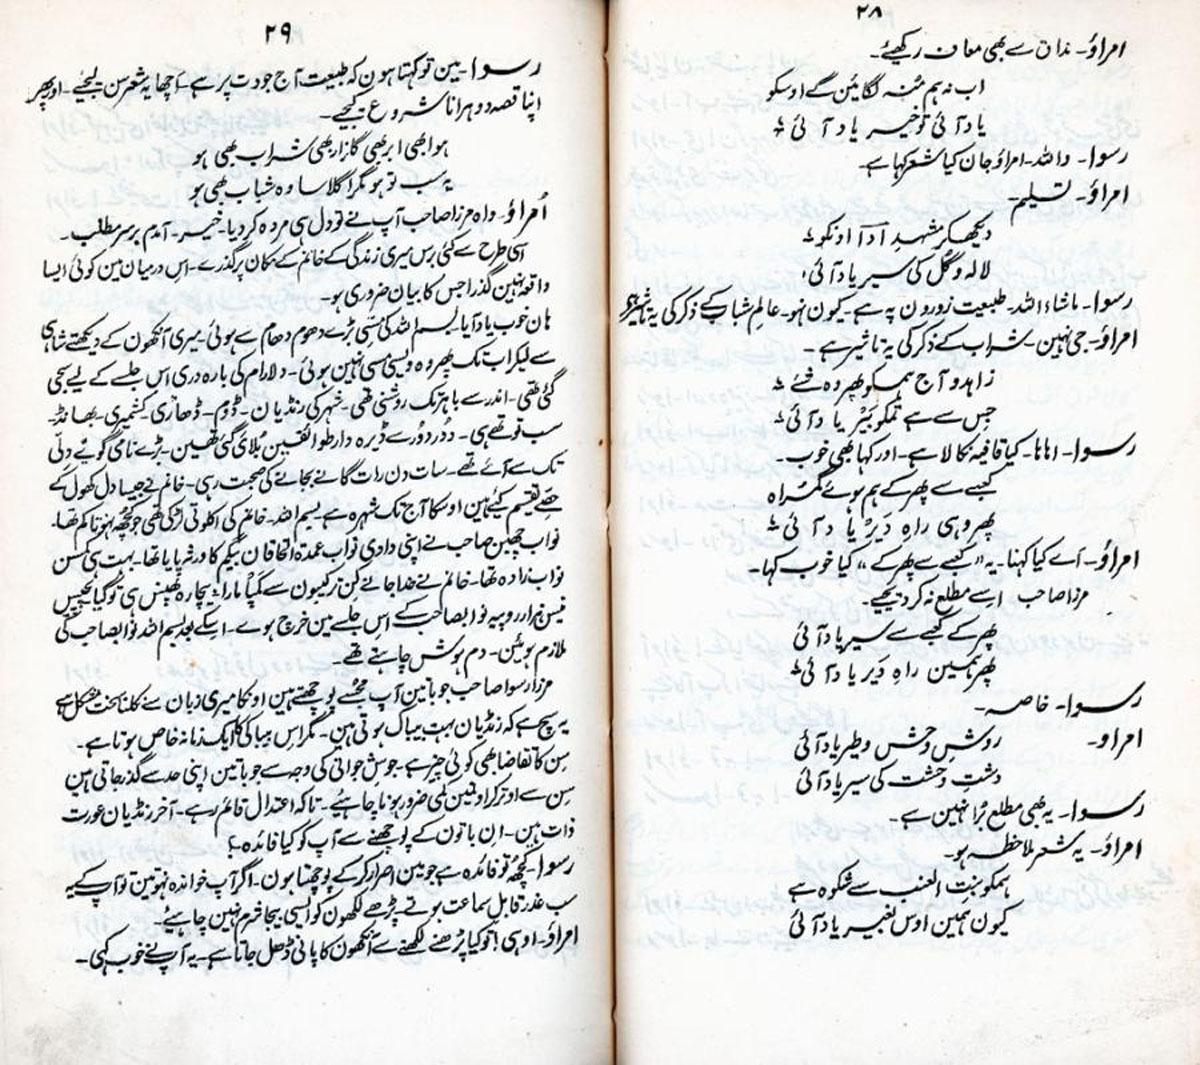 ۲۸
امراؤ۔ مذاق سے بھی معاف رکھیے۔
اب نہ ہم منہ لگائیں گے اوسکو
یاد آئی تو خیر یاد آئی
رسوا۔ واللہ۔ امراؤ جان کیا شعر کہا ہے۔
امراؤ۔ تسلیم۔
دیکھکر مشہد آدا اونکو
لالہ و گل کی سیر یاد آئی
رسوا۔ ماشاءاللہ۔ طبیعت زورون پہ ہے۔ کیون نہو۔ عالم شباب کے ذکر کی یہ تاثیر ہے
امراؤ۔ جی نہین۔ شراب کے ذکر کی یہ تاثیر ہے۔
زاہدو آج ہمکو پھر وہ شے
جس سے ہے تمکو بَیر یاد آئی
رسوا۔ اہاہا۔ کیا قافیہ نکالا ہے۔ اور کہا بھی خوب۔
کعبے سے پھر کے ہم ہوئے گمراہ
پھر وہی راہِ دَیر یاد آئی
امراؤ۔ اے کیا کہنا۔ یہ "کعبے سے پھر کے" کیا خوب کہا۔
مرزا صاحب اسے مطلع نہ کر دیجیے۔
پھر کے کعبے سے سیر یاد آئی
پھر ہمین راہِ دَیر یاد آئی
رسوا۔ خاصہ۔
امراو۔ روشِ وحش و طیر یاد آئی
دشتِ وحشت کی سیر یاد آئی
رسوا۔ یہ بھی مطلع بُرا نہین ہے۔
امراؤ۔ یہ شعر ملاحظہ ہو۔
ہمکو بنت العنب سے شکوہ ہے
کیون ہمین اوس بغیر یاد آئی
۲۹
رسوا۔ مین تو کہتا ہون کہ طبیعت آج جودت پر ہے۔ اچھا یہ شعر سن لیجیے۔ اور پھر
اپنا قصہ دوہرانا شروع کیجے۔
ہوا بھی ابر بھی گلزار بھی شراب بھی ہو
یہ سب تو ہو مگر اگلا سا وہ شباب بھی ہو
اُمراؤ۔ واہ مرزا صاحب آپ نے تو دل ہی مردہ کر دیا۔ خیر۔ آمدم برسر مطلب۔
اسی طرح سے کئی برس میری زندگی کے خانم کے مکان پر گذرے۔ اس درمیان مین کوئی ایسا
واقعہ نہین گذرا جس کا بیان ضروری ہو۔
ہان خوب یاد آیا۔ بسم اللہ کی مسّی بڑے دھوم دھام سے ہوئی۔ میری آنکھون کے دیکھتے شاہی
سے لیکر اب تک پھر وہ ویسی مسی نہین ہوئی۔ دلارام کی بارہ دری اس جلسے کے لیے سجی
گئی تھی۔ اندر سے باہر تک روشنی تھی۔ شہر کی رنڈیان۔ ڈوم۔ ڈھاڑی۔ کشمیری۔ بھانڈ۔
سب تو تھے ہی۔ دور دور سے ڈیرہ دار طوائفین بلائی گئی تھین۔ بڑے نامی گویے دلّی
تک سے آئے تھے۔ سات دن رات گانے بجانے کی صحبت رہی۔ خانم نے جیسا دل کھول کے
حصے تقسیم کیے ہین اوسکا آج تک شہرہ ہے۔ بسم اللہ۔ خانم کی اکلوتی لڑکی تھی جو کچھ نہوتا کم تھا۔
نواب چھبن صاحب نے اپنی دادی نواب عمدۃ الخاقان بیگم کا ورثہ پایا تھا۔ بہت ہی کمسن
نواب زادہ تھا۔ خانم نے خدا جانے کن ترکیبون سے کمپا مارا۔ بیچارہ پھنس ہی تو گیا۔ پچیس
تیس ہزار روپیہ نواب صاحب کے اس جلسے مین خرچ ہوے۔ اسکے بعد بسم اللہ نواب صاحب کی
ملازم ہوئین۔ دم ہوش چاہتے تھے۔
مرزا رسوا صاحب جو باتین آپ مجھسے پوچھتے ہین اونکا میری زبان سے نکلنا سخت مشکل ہے
یہ سچ ہے کہ رنڈیان بہت بیباک ہوتی ہین۔ مگر اس بیباکی کا ایک زمانہ خاص ہوتا ہے۔
سن کا تقاضا بھی کوئی چیز ہے۔ جوش جوانی کی وجہ سے جو باتین اپنی حد سے گذر جاتی ہین
سن سے اوتر کر اونمین کمی ضرور ہونا چاہیے۔ تاکہ اعتدال قائم رہے۔ آخر رنڈیان عورت
ذات ہین۔ ان باتون کے پوچھنے سے آپ کو کیا فائدہ ؟
رسوا۔ کچھ تو فائدہ ہے جو مین اصرار کر کے پوچھتا ہون۔ اگر آپ خواندہ نہوتین تو آپ کے یہ
سب عذر قابل سماعت ہوتے۔ پڑھے لکھون کو ایسی بیجا شرم نہین چاہیے۔
امراؤ۔ اوہی ! تو کیا پڑھنے لکھنے سے آنکھون کا پانی ڈھل جاتا ہے۔ یہ آپ نے خوب کہی۔